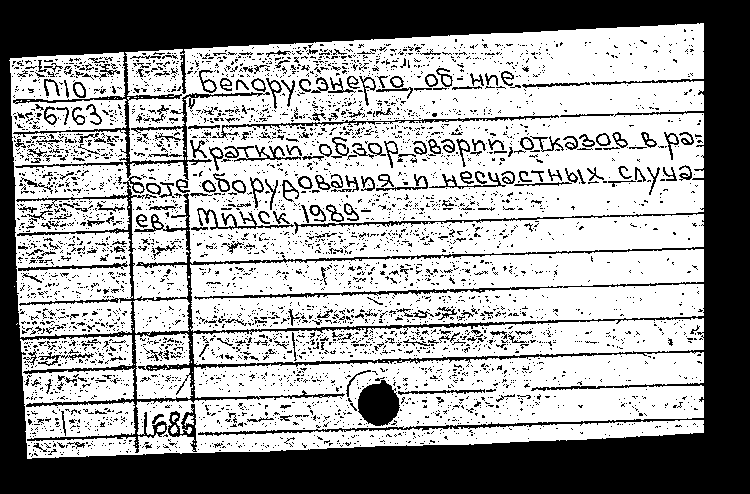 П10 "Белорусэнерго", об-ние
6763
Краткий обзор аварий, отказов в ра-
боте оборудования и несчастных случа-
ев. - Минск, 1989-
1686